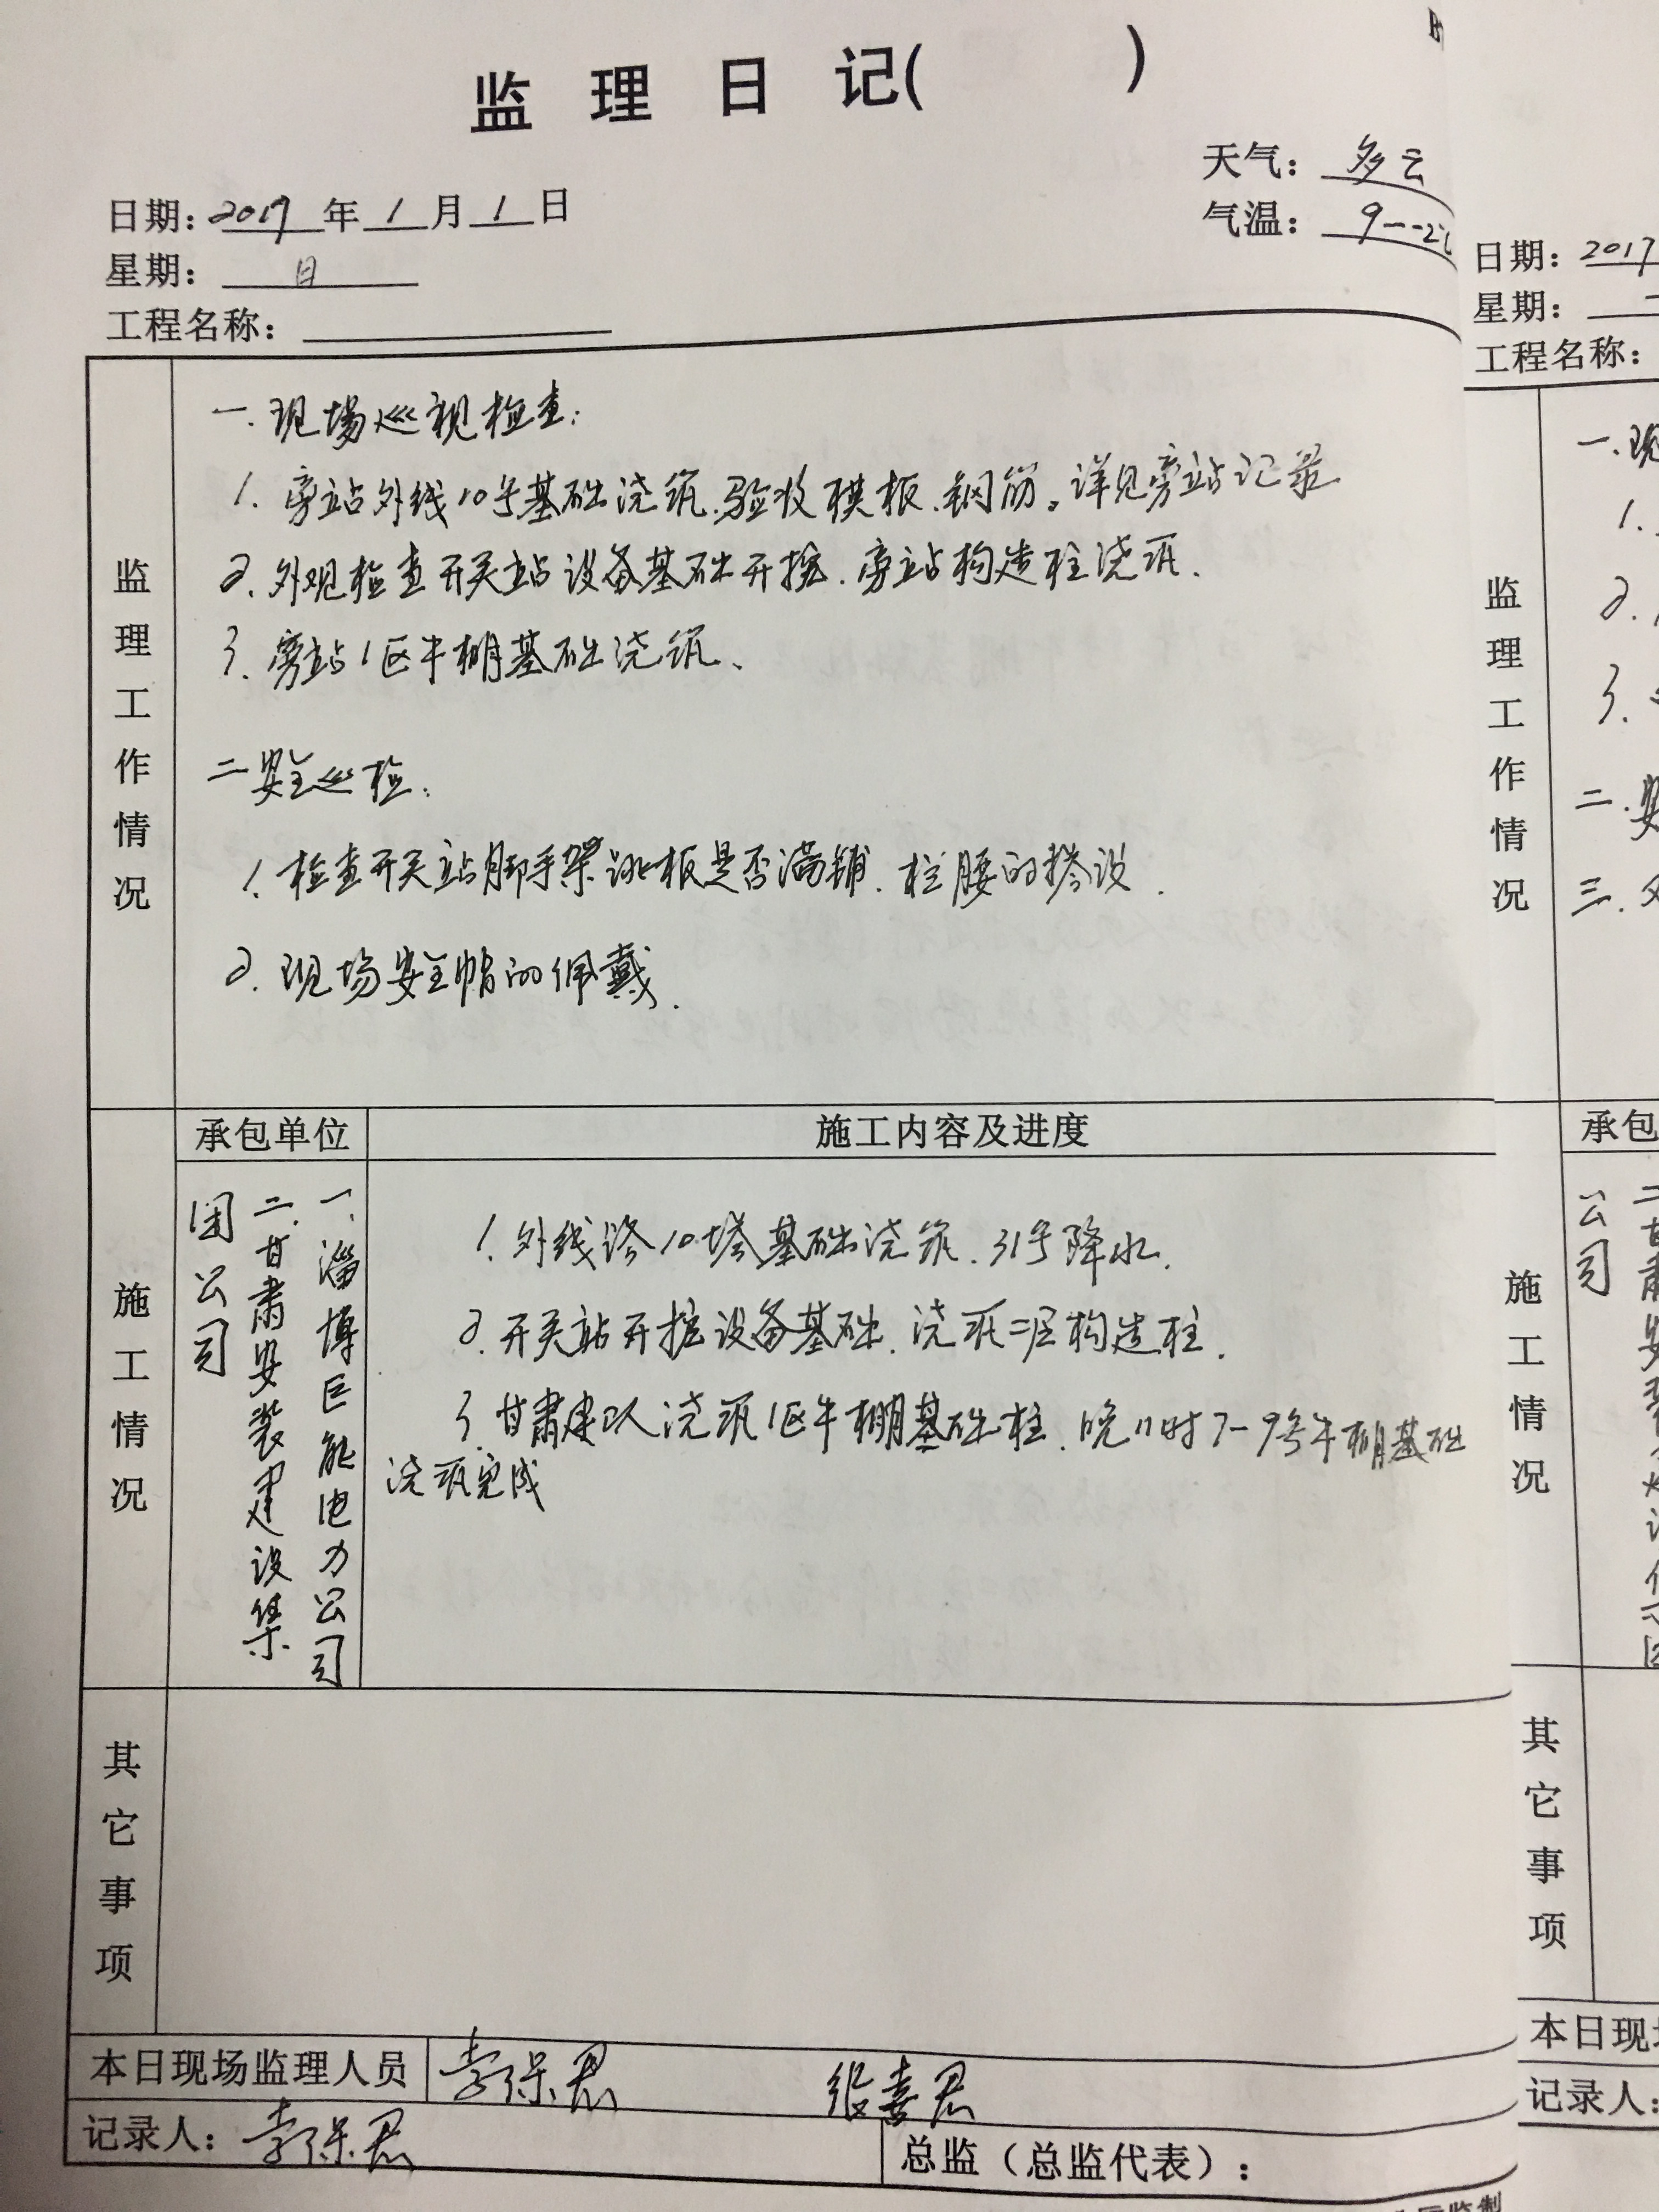 监 理 日 记（ ）
天气：多云
日期：2017年1月1日
气温：9--2℃
星期：日
工程名称：
监理工作情况
一.现场巡视检查：
1.旁站外线10号基础浇筑.验收模板.钢筋。详见旁站记录
2.外观检查开关站设备基础开挖.旁站构造柱浇筑.
3.旁站1区牛棚基础浇筑、
二安全巡检：
1.检查开关站脚手架跳板是否满铺.栏腰的搭设.
2.现场安全帽的佩戴.
施工情况
承包单位
施工内容及进度
一、淄博巨能电力公司
二.甘肃安装建设集
团公司
1.外线路10塔基础浇筑.31号降水.
2.开关站开挖设备基础.浇筑二层构造柱.
3.甘肃建以浇筑1区牛棚基础柱.晚11时7-9号牛棚基础
浇筑完成
其它事项
本日现场监理人员 李保君 张喜君
记录人：李保君
总监（总监代表）：
日期：2017
星期：二
工程名称：
监理工作情况
一.现
1.
2.
3.
二.安
三.
施工情况
承包
二甘肃安装建设集团
公司
其它事项
本日现场
记录人：
监制